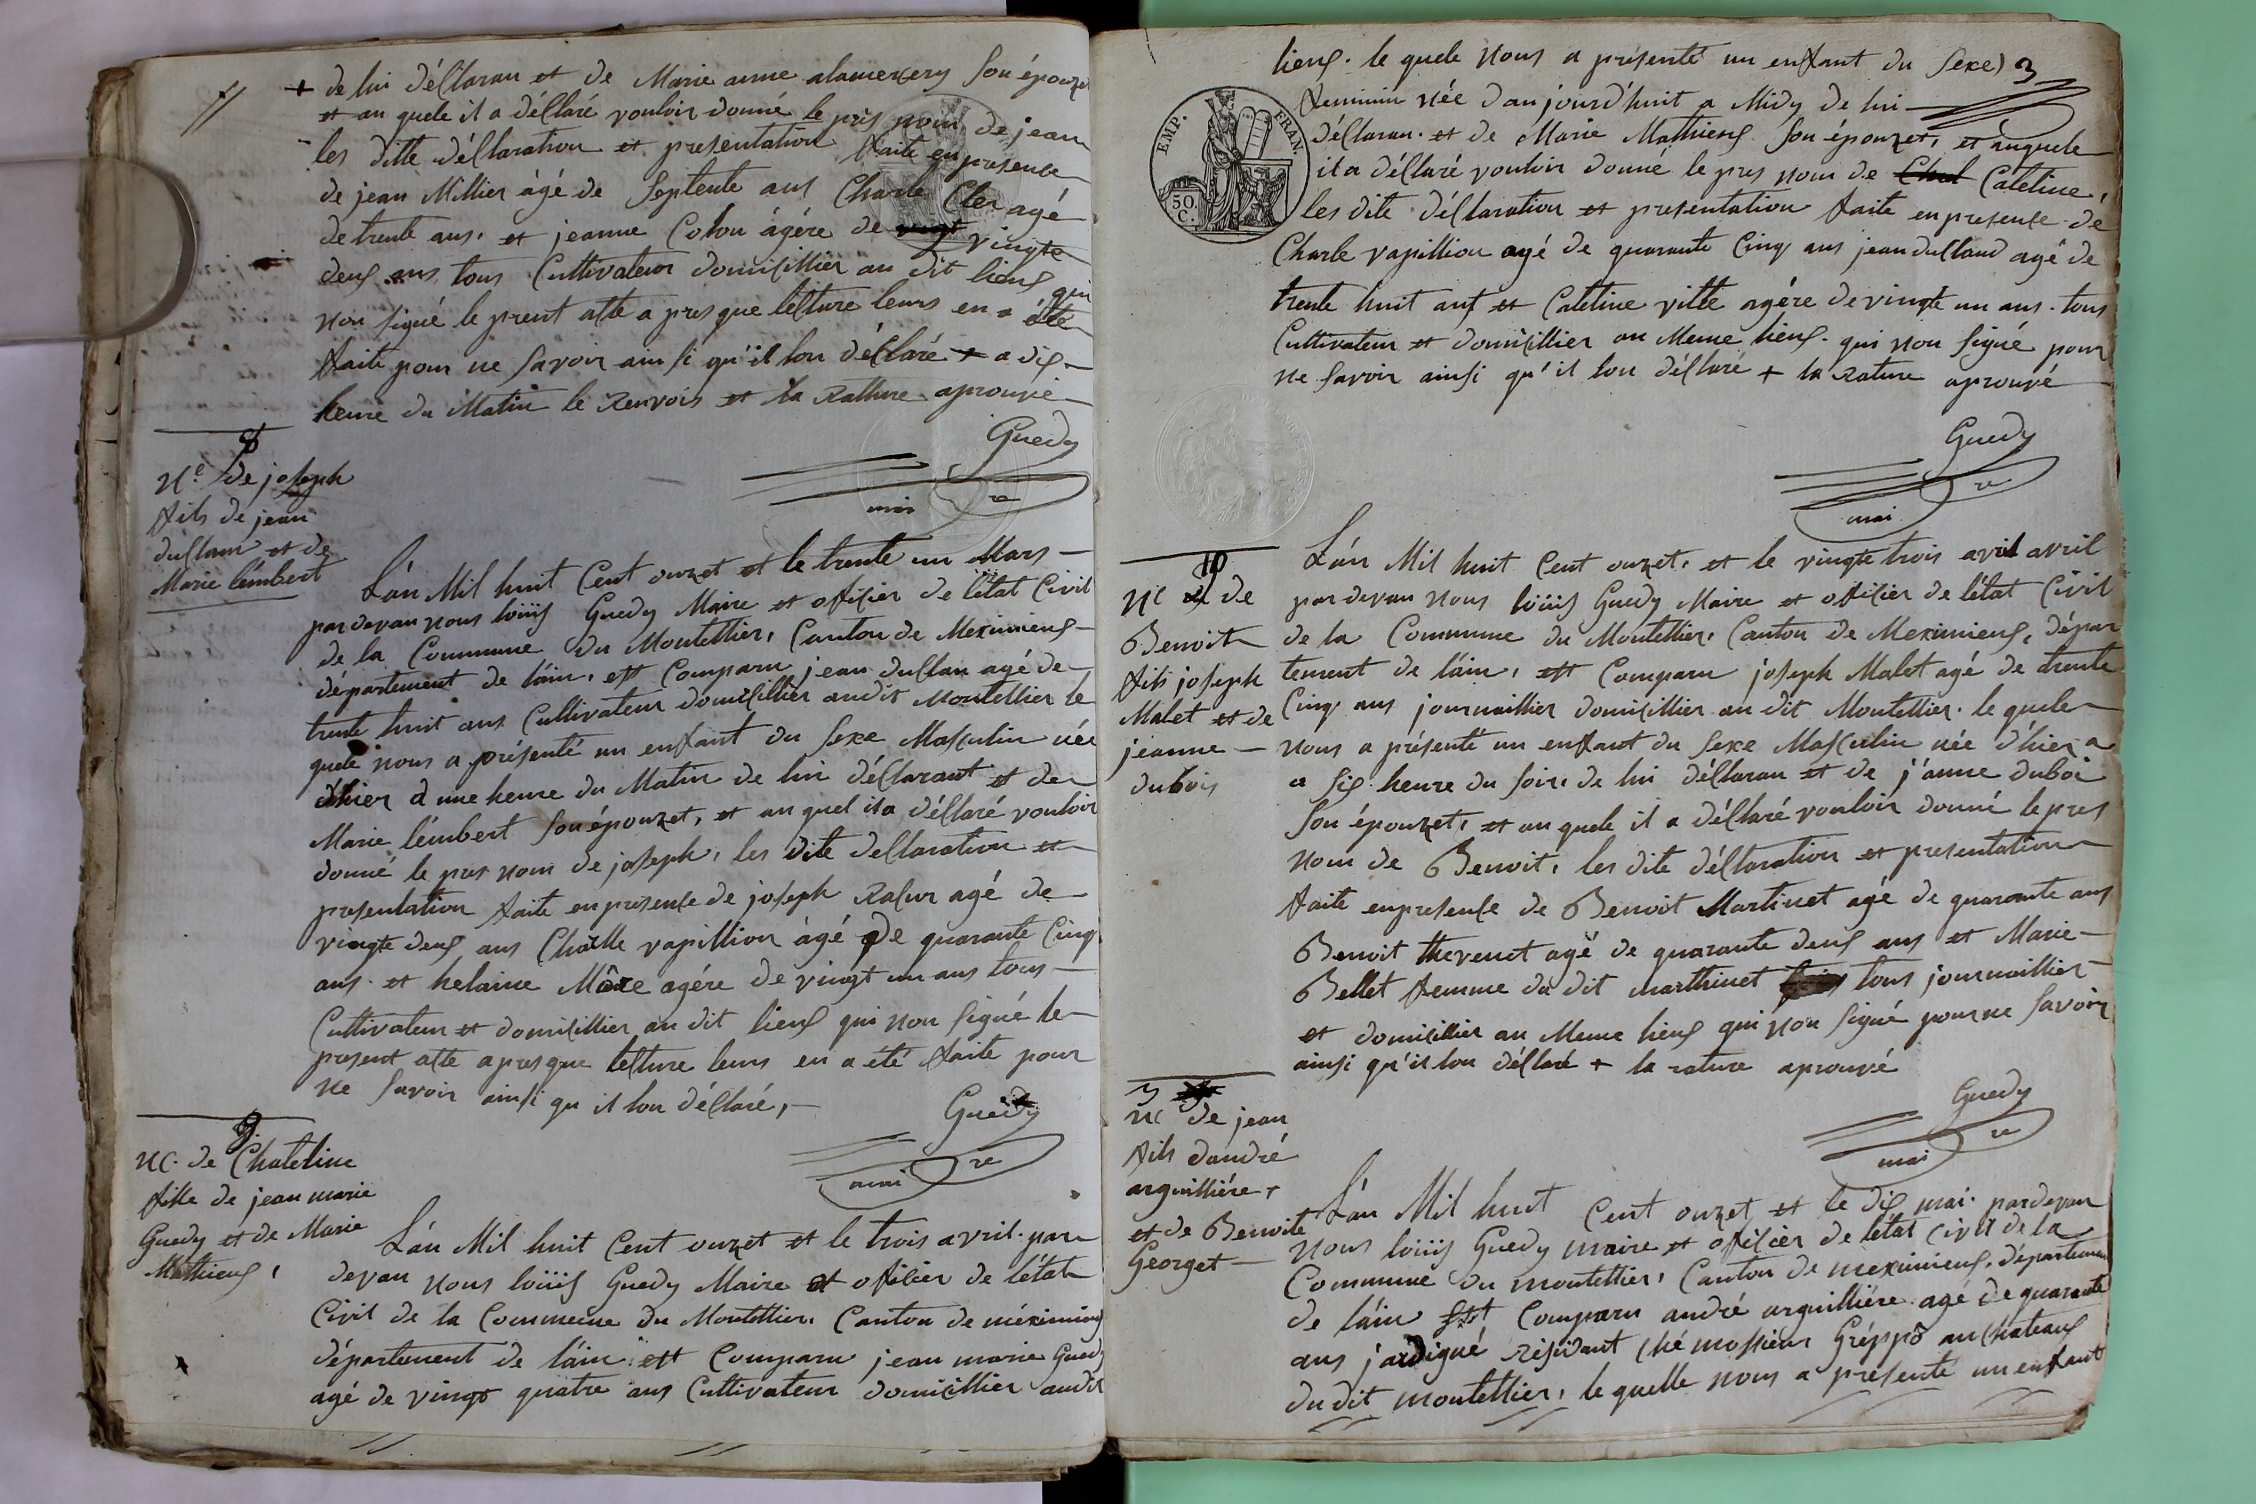 + de lui déClaran et de Marie anne alamercery son épouzet
et au quele il a déClaré vouloir donné le près nom de jean
les ditte déClaration et presentation faite en presence
de jean Millier âgé de Septente ans Charle Cler agé
de trente ans, et jeanne Colon âgére de vingte
deux ans tous Cultivateur domicillier au dit lieux qui
non signé le prent atte a pres que lecture leurs en a été
faite pour ne savoir ainsi qu'il lon déClaré + a dix
heure du Matin le Renvois et la Rathure aprouvé
Guedy
mai re
8
Nce de joseph
fils de jean
duclaux et de
Marie lémbert
L'án Mil huit Cent onzet et le trente un Mars
par devan nous loüis Guedy Maire et officier de létat Civil
de la Commune du Montellier, Canton de Meximieux
département de láin, est Comparu jean duclau agé de
trente huit ans Cultivateur domicillier audit Montellier le
quele nous a présenté un enfant du sexe Masculin née
dhier a une heure du Matin de lui déClarant et de
Marie lémbert son épouzet, et au quel il a déClaré vouloir
donné le pres nom de joseph, les dite declaration et
presentation faite en presence de joseph Racur agé de
vingte deux ans Charlle vapillion âgé de quarante Cinq
ans et helaine Mâre agére de vingt un ans tous
Cultivateur et domicillier au dit lieux qui non signé le
present atte apres que lecture leurs en a été faite pour
ne savoir ainsi qu il lon déClaré,
Guedy
mai re
9.
NC. de Chateline
fille de jean marie
Guedy et de Marie
Mathieux,
L'án Mil huit Cent onzet et le trois avril par
devan nous loüis Guedy Maire et officier de létat
Civil de la Commune du Montellier, Canton de méximieux
département de láin, est Comparu jean marie Guedy
agé de vingt quatre ans Cultivateur domicillier audit
lieux. le quele nous a présenté un enfant du sexe) 3
feminin née d aujourd'huit a Midy de lui
déClaran. et de Marie Mathieux son épouzet, et auquele
il a déClaré vouloir donné le pres nom de Cateline,
les dite déClaration et presentation faite en presence de
Charle vapillion agé de quarante Cinq ans jean duclaud agé de
trente huit ans et Cateline vitte agére de vingte un ans. tous
Cultivateur et domicillier au Meme lieux. qui non signé pour
ne savoir ainsi qu'il lon déClaré + la Rature aprouvé
EMP. FRAN.
50. C.
Guedy
mai re
10
NC de
Benoit
fils joseph
Malet et de
jeanne
dubois
L'án Mil huit Cent onzet, et le vingte trois avril avril
par devan nous loüis Guedy Maire et officier de létat Civil
de la Commune du Montellier, Canton de Meximieux, dépar
tement de láin, est Comparu joseph Malet agé de trente
Cinq ans journaillier domicillier au dit Montellier. le quele
nous a présenté un enfant du sexe Masculin née d'hier a
a six heure du soir, de lui déClaran et de j'anne duboi
son épouzet, et au quele il a déClaré vouloir donné le pres
nom de Benoit, les dite déClaration et presentation
faite en presence de Benoit Martinet agé de quarante ans
Benoit thevenet agé de quarante deux ans et Marie
Bellet femme du dit marthinet tous journaillier
et domicillier au Meme lieux qui non signé pour ne savoir
ainsi qu'il lon déClaré + la rature aprouvé
Guedy
mai re
NC de jean
fils dandré
arguilliére +
et de Benoite
Georget
L'án Mil huit Cent onzet et le dix mai. par devan
nous loüis Guedy maire et officier de létat Civil de la
Commune du montellier, Canton de meximieux, departemen
de láin est Comparu andré arguilliére agé de quarante
ans jardigné résidant ché mossieur Gréppo au chateaux
du dit montellier, le quelle nous a présenté un enfant